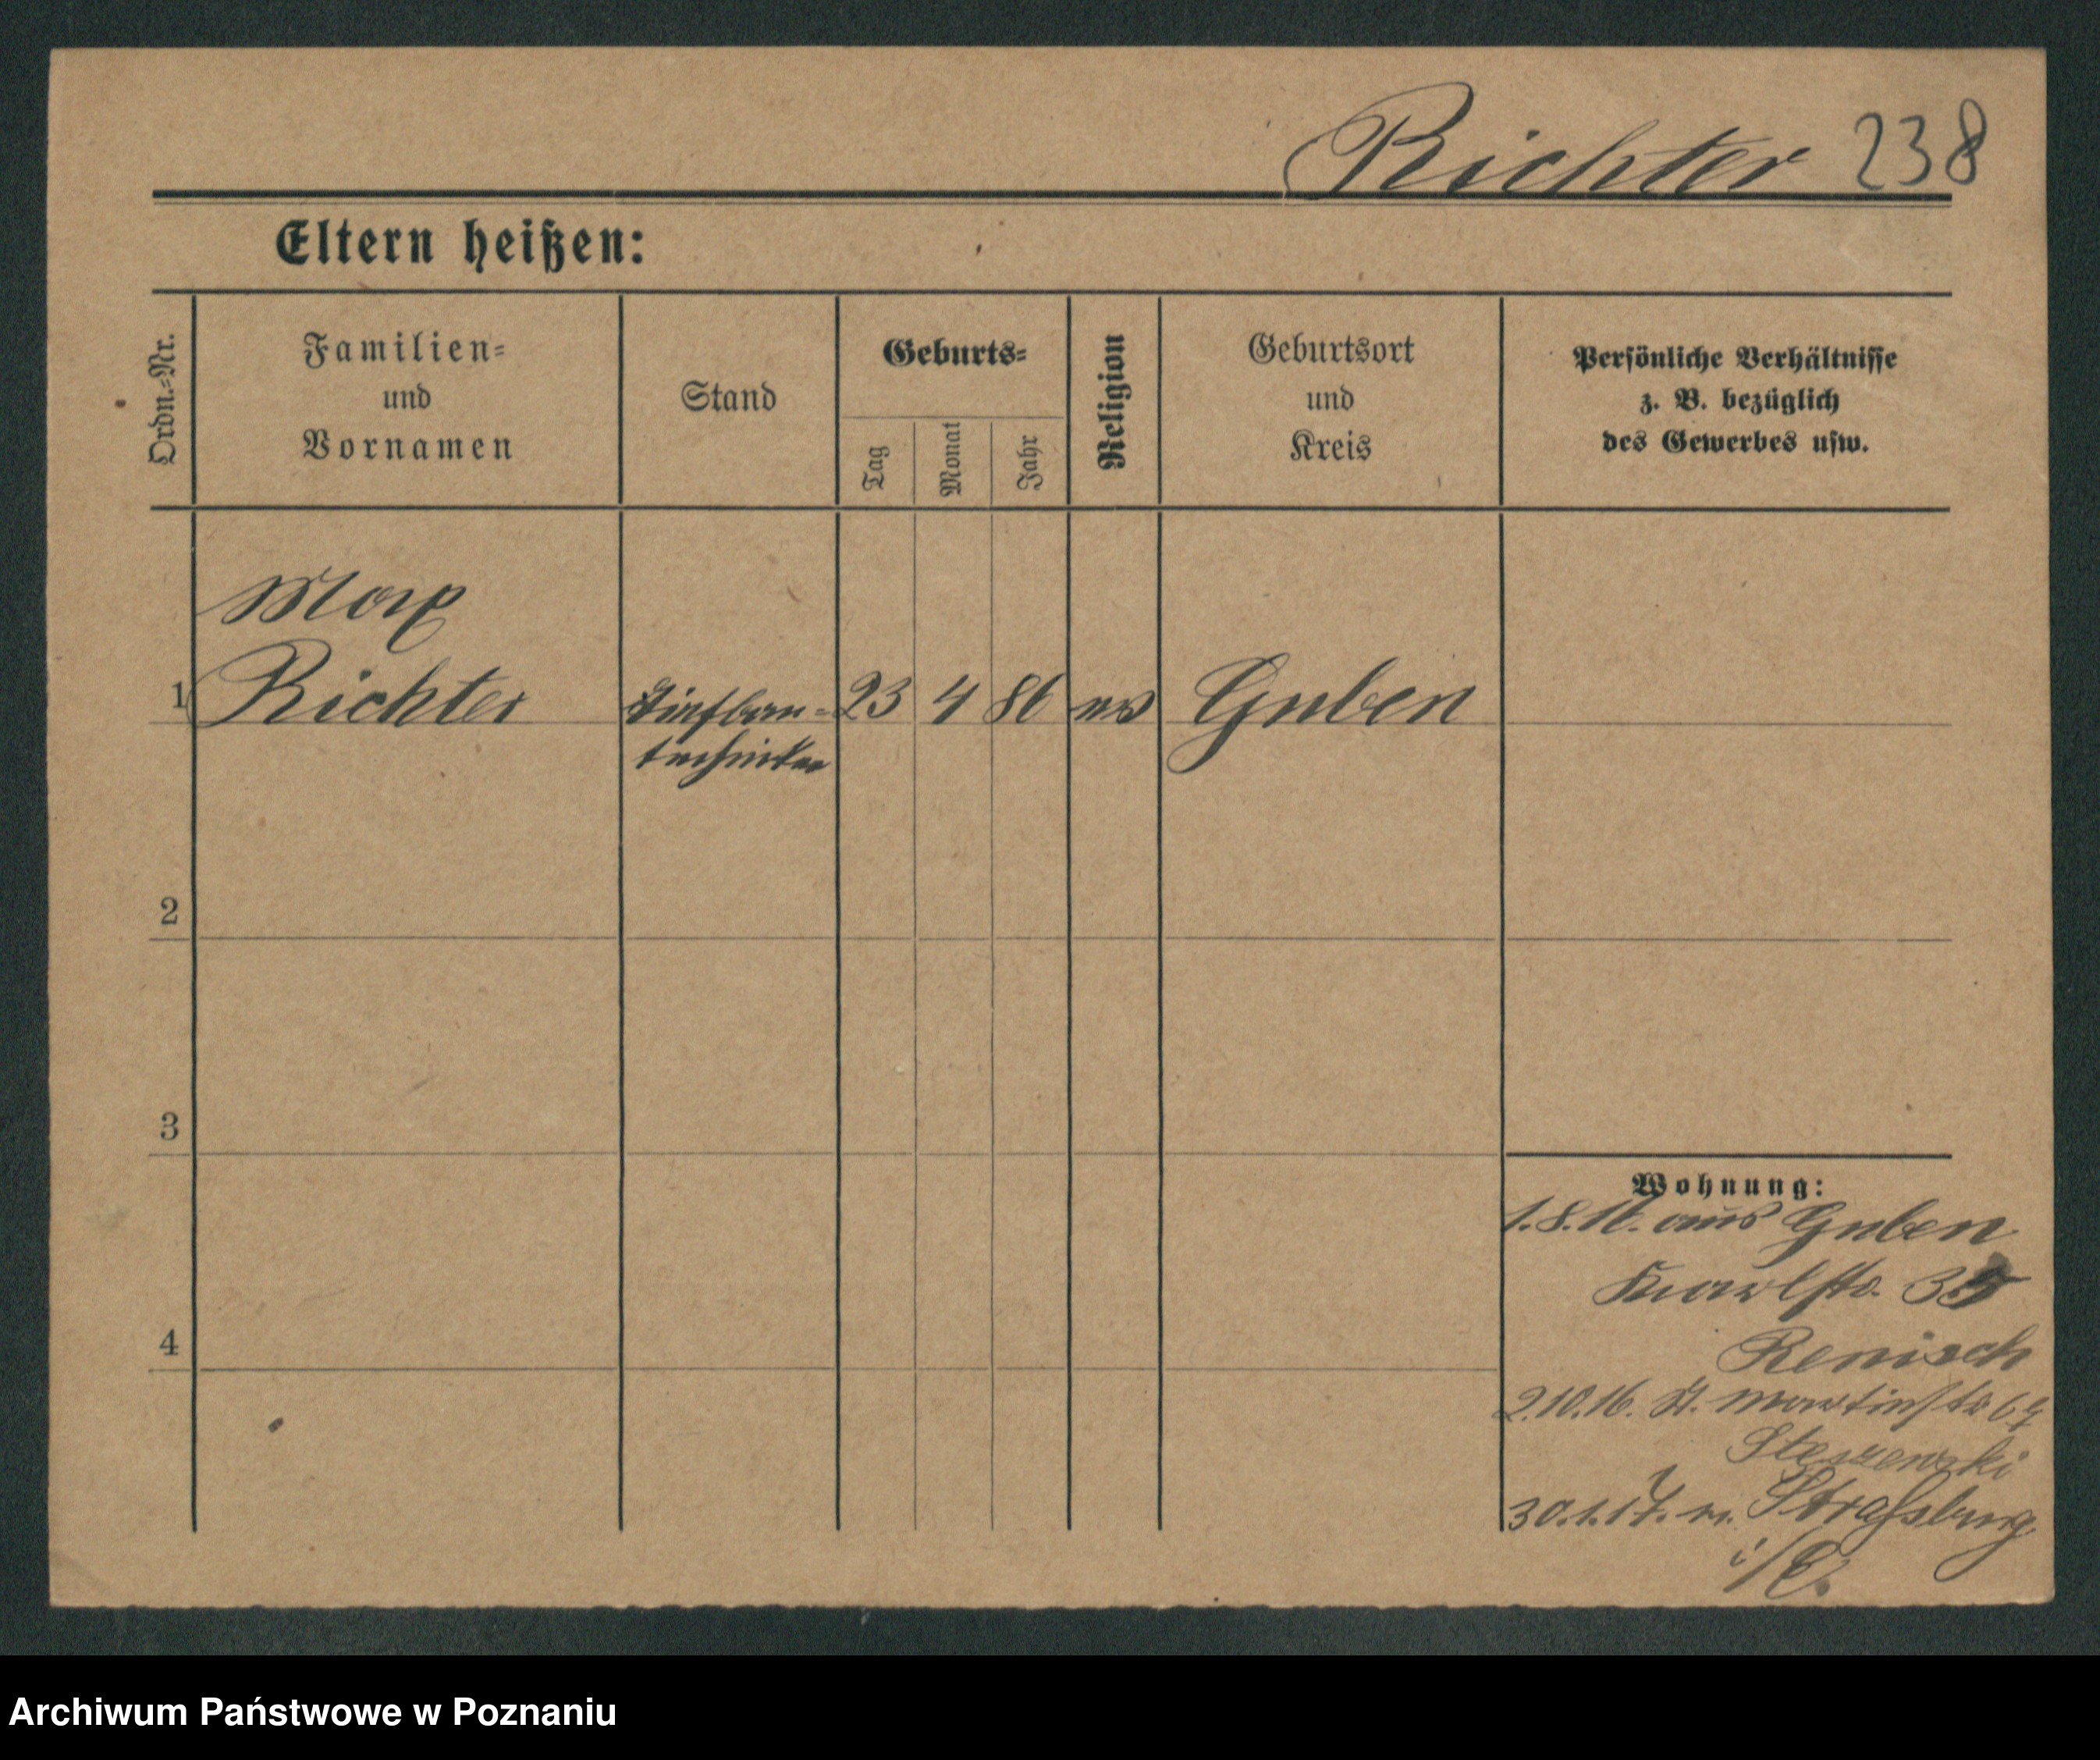 Richter 238
Eltern heißen:
Ordn.-Nr.
Familien-
und
Vornamen
Stand
Geburts-
Tag
Monat
Jahr
Religion
Geburtsort
und
Kreis
Persönliche Verhältnisse
z. B. bezüglich
des Gewerbes usw.
Max
1 Richter Tiefbau- 23 4 86 ev Guben
techniker
2
3
4
Wohnung:
1.8.16. aus Guben
35
Renisch
2.10.16. St. Martinstr 64
Steszewski
30.1.17. n. Strassburg
i/E.